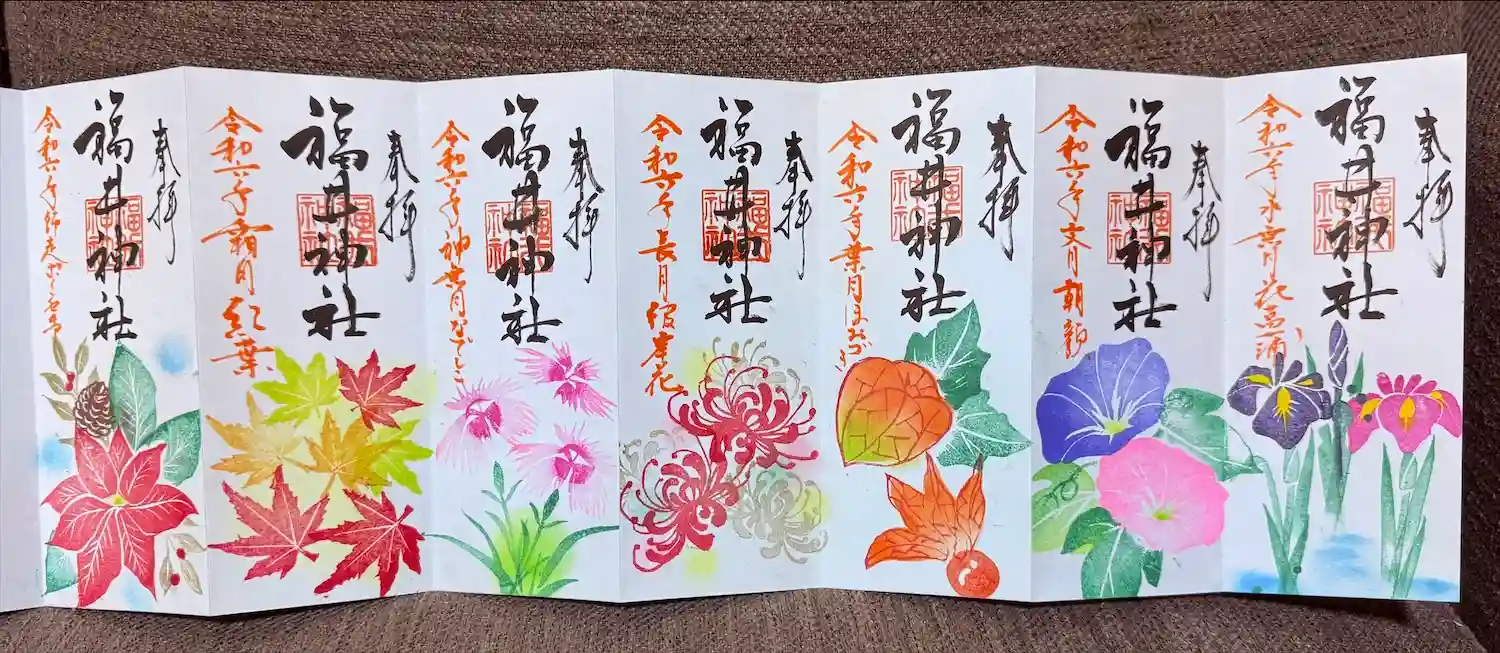 奉拝
福井神社
令和六年水無月花菖蒲
奉拝
福井神社
令和六年文月朝顔
奉拝
福井神社
令和六年葉月ほおずき
奉拝
福井神社
令和六年長月彼岸花
奉拝
福井神社
令和六年神無月なでしこ
奉拝
福井神社
令和六年霜月紅葉
奉拝
福井神社
令和六年師走